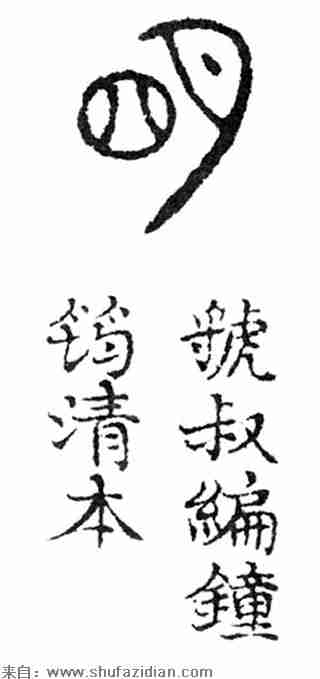 明
虢叔編鐘
筠清本
来自：www.shufazidian.com